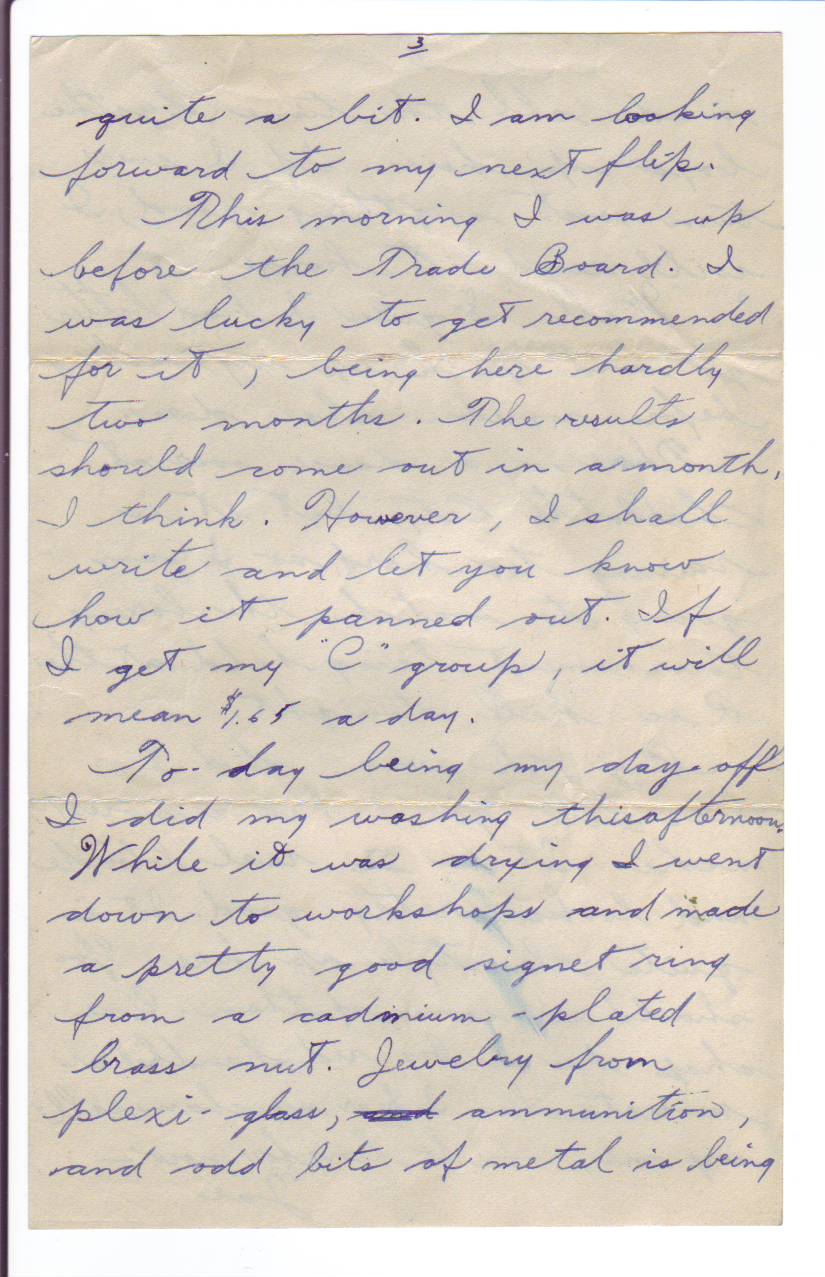 3
quite a bit. I am looking
forward to my next flip.
This morning I was up
before the Trade Board. I
was lucky to get recommended
for it, being here hardly
two months. The results
should come out in a month,
I think. However, I shall
write and let you know
how it panned out. If
I get my "C" group, it will
mean $1.65 a day.
To-day being my day-off
I did my washing this afternoon.
While it was drying I went
down to workshops and made
a pretty good signet ring
from a cadmium-plated
brass nut. Jewelry from
plexi-glass, and ammunition,
and odd bits of metal is being